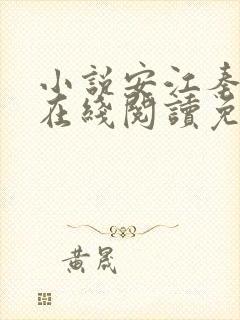 小説安江秦
在綫閱讀免
黃晟